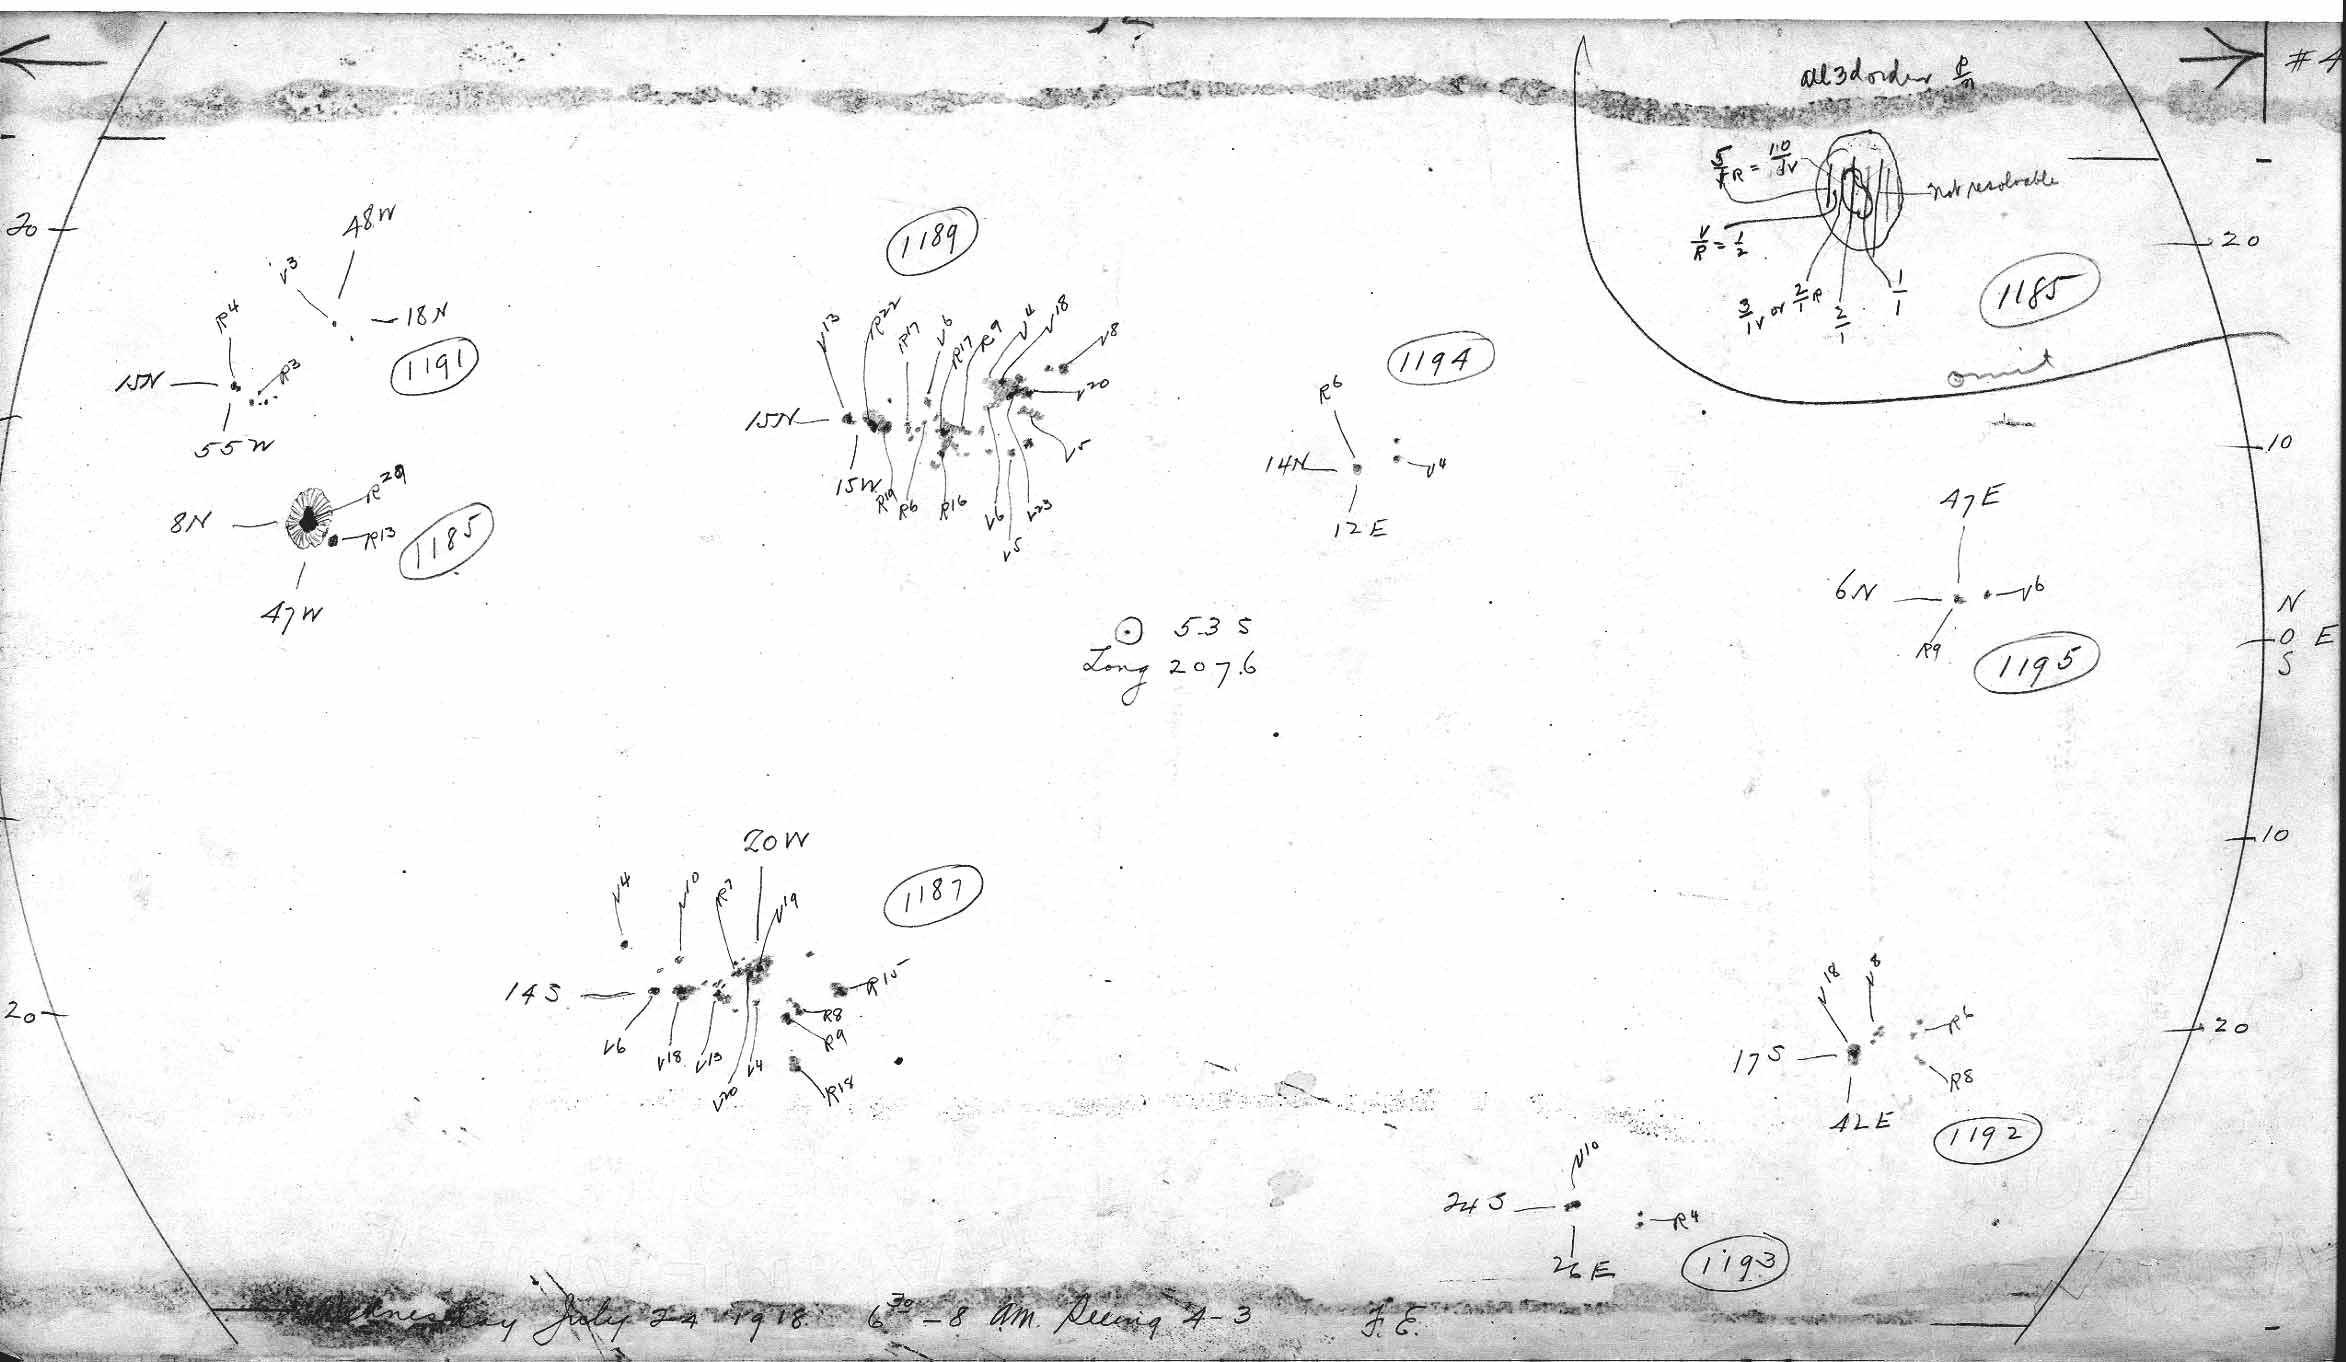 # 4
all 3d order
5/1 R = 10/1 V
Not resolvable
V/R = 1/2
3/1 V or 2/1 R
2/1
1/1
1185
omit
20
20
48W
V3
18N
R4
R3
15N
55W
1191
1189
V13
R22
R17
V6
R17
R9
V4
V18
V8
V20
V5
15N
15W
R19
R6
R16
V6
V5
V23
1194
R6
14N
V4
12E
10
8N
R29
R13
1185
47W
47E
6N
V6
R9
1195
N
O E
S
⊙ 535
Long 207.6
10
20W
1187
V4
V10
R7
V19
14S
R15
R8
R9
R18
V6
V18
V13
V20
V4
20
20
V18
V8
R6
17S
R8
42E
1192
V10
24S
R4
26E
1193
Wednesday July 24 1918 6 30 - 8 A.M. Seeing 4-3 F.E.